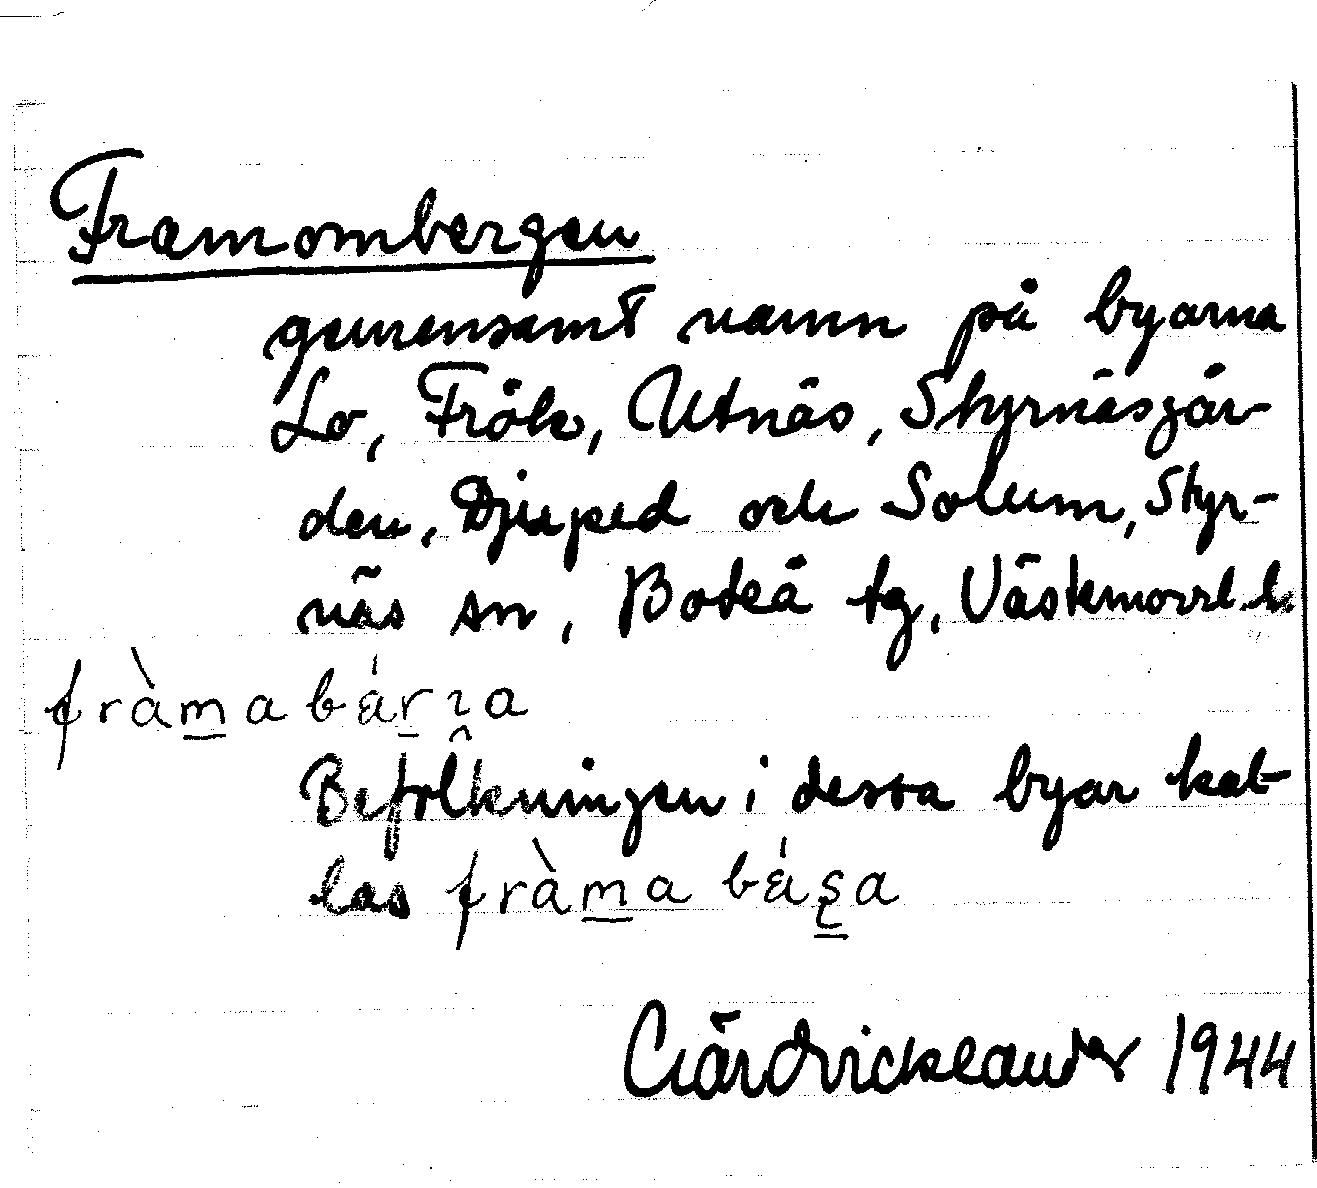 Framombergen
gemensamt namn på byarna
Lo, Frök, Utnäs, Styrnäsgår-
den, Djuped och Solum, Styr-
näs sn, Boteå tg, Västernorrl. l.
fràmabárɿa
Befolkningen i dessa byar kal-
las fràma bása
1944